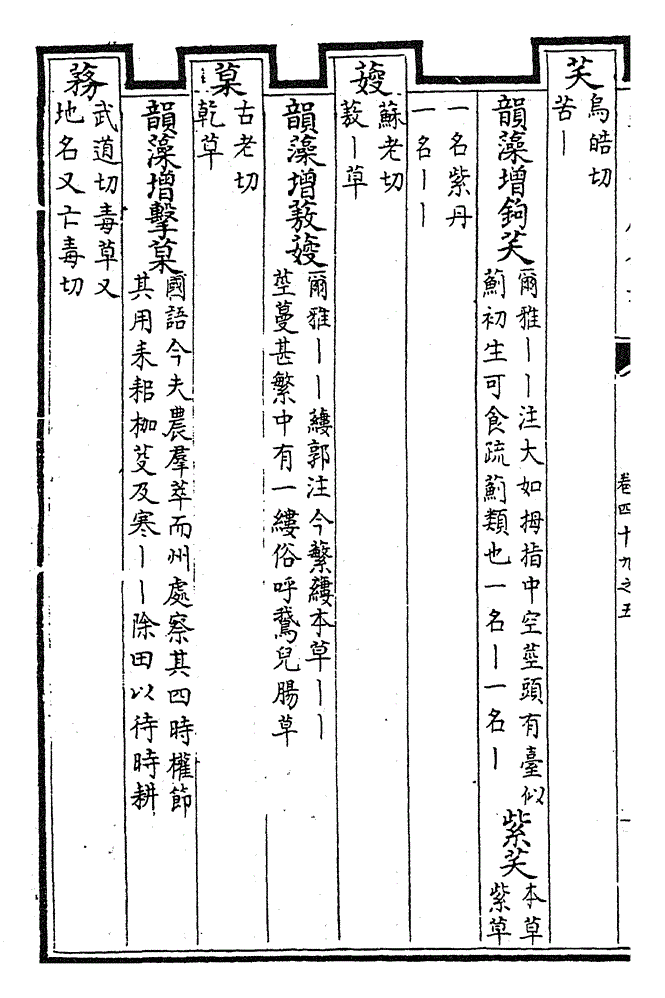 卷四十九之五
一
芺
烏皓切
苦丨
韻藻增鉤芺
爾雅丨丨注大如拇指中空莖頭有臺似
薊初生可食疏薊類也一名丨一名丨
紫芺
本草
紫草
一名紫丹
一名丨丨
䕅
蘇老切
蔜丨草
韻藻增蔜䕅
爾雅丨丨縷郭注今蘩縷本草丨丨
莖蔓甚繁中有一縷俗呼鵞兒腸草
菒
古老切
乾草
韻藻增擊菒
國語今夫農羣萃而州處察其四時權節
其用耒耜枷芟及寒丨丨除田以待時耕
蓩
武道切毒草又
地名又亡毒切